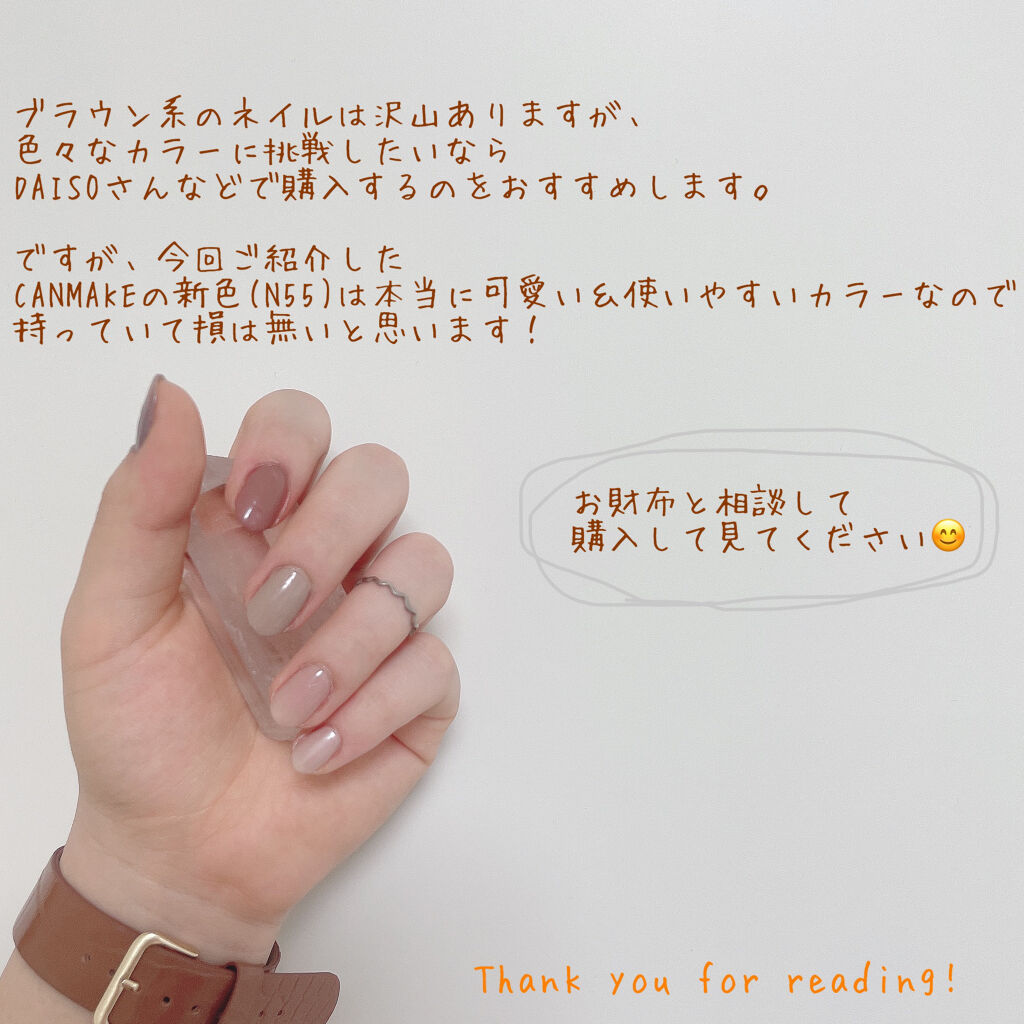 ブラウン系のネイルは沢山ありますが、
色々なカラーに挑戦したいなら
DAISOさんなどで購入するのをおすすめします。
ですが、今回ご紹介した
CANMAKEの新色(N55)は本当に可愛い&使いやすいカラーなので
持っていて損は無いと思います！
お財布と相談して
購入して見てください😊
Thank you for reading!